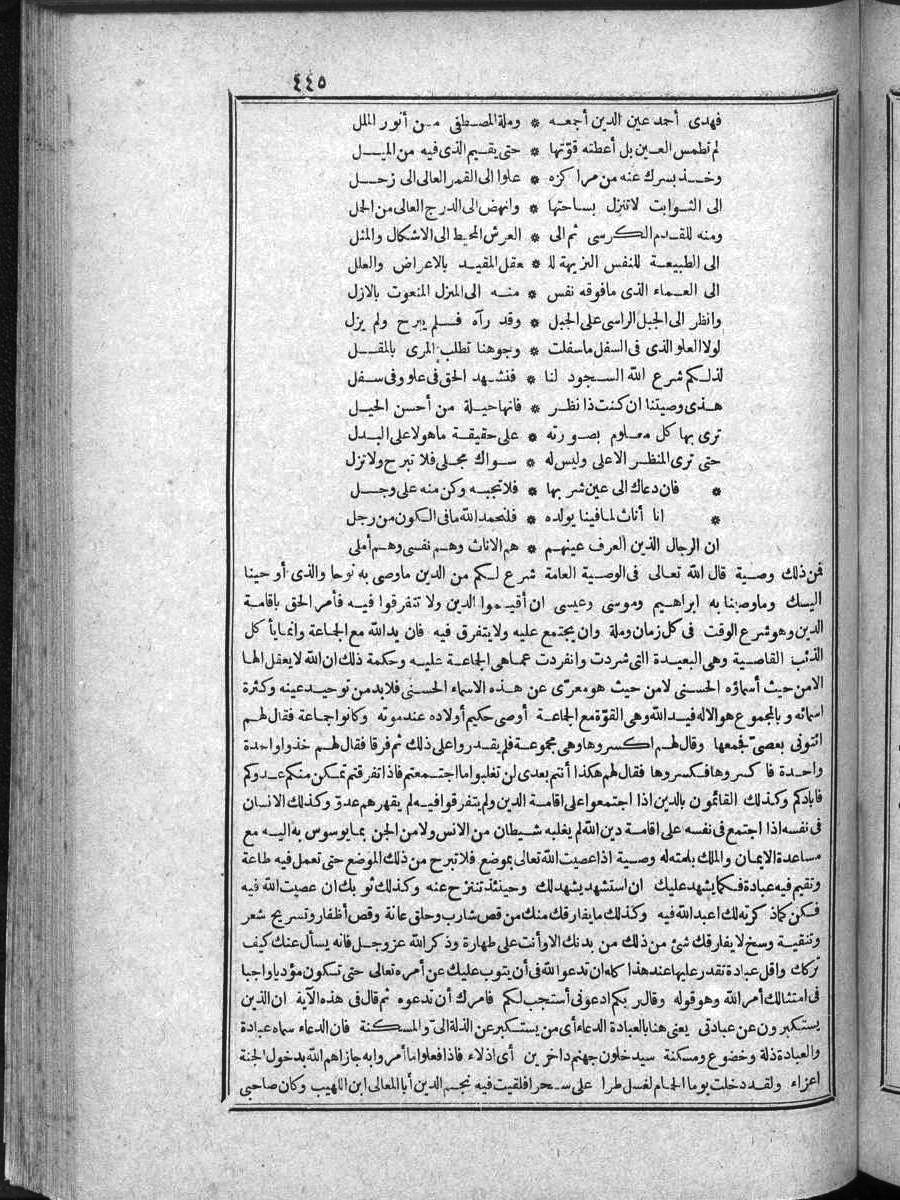 ٤٤٥
فهدى أحمد عين الدين أجمعه * وملة المصطفى من أنور الملل
لم تطمس العين بل أعطته قوّتها * حتى يقيم الذى فيه من الميل
وخذ بسرك عنه من مراكزه * علوا الى القمر العالى الى زحل
الى الثوابت لا تنزل بساحتها * وانهض الى الدرج العالى من الحمل
ومنه للقدم الكرسى ثم الى * العرش المحيط الى الاشكال والمثل
الى الطبيعة للنفس النزيهة لل * عقل المقيد بالاعراض والعلل
الى العماء الذى مافوقه نفس * منه الى المنزل المنعوت بالازل
وانظر الى الجبل الراسى على الجبل * وقد رآه فلم يبرح ولم يزل
لولا العلو الذى فى السفل ماسفلت * وجوهنا تطلب المرئى بالمقل
لذلكم شرع الله السجود لنا * فنشهد الحق فى علو وفى سفل
هذى وصيتنا ان كنت ذا نظر * فانها حيلة من أحسن الحيل
ترى بها كل معلوم بصورته * على حقيقة ماهو لا على البدل
حتى ترى المنظر الاعلى وليس له * سواك مجلى فلا تبرح ولا تزل
* فان دعاك الى عين شربها * فلا تجبه وكن منه على وجل
* انا أناث لما فينا يولده * فلنحمد الله مافى الكون من رجل
ان الرجال الذين العرف عينهم * هم الاناث وهم نفسى وهم أملى
فمن ذلك وصية قال الله تعالى فى الوصية العامة شرع لكم من الدين ماوصى به نوحا والذى أوحينا
اليك وماوصينا به ابراهيم وموسى وعيسى ان أقيموا الدين ولا تتفرقوا فيه فأمر الحق باقامة
الدين وهو شرع الوقت فى كل زمان وملة وان يجتمع عليه ولا يتفرق فيه فان يد الله مع الجماعة وانما يأكل
الذئب القاصية وهى البعيدة التى شردت وانفردت عما هى الجماعة عليه وحكمة ذلك ان الله لا يعقل الها
الا من حيث أسماؤه الحسنى لا من حيث هو معرّى عن هذه الاسماء الحسنى فلا بد من توحيد عينه وكثرة
اسمائه وبالمجموع هو الاله فيد الله وهى القوّة مع الجماعة أوصى حكيم أولاده عند موته وكانوا جماعة فقال لهم
ائتونى بعصىّ فجمعها وقال لهم اكسروها وهى مجموعة فلم يقدروا على ذلك ثم فرقا فقال لهم خذوا واحدة
واحدة فاكسروها فكسروها فقال لهم هكذا أنتم بعدى لن تغلبوا ما اجتمعتم فاذا تفرقتم تمكن منكم عدوكم
فابادكم وكذلك القائمون بالدين اذا اجتمعوا على اقامة الدين ولم يتفرقوا فيه لم يقهرهم عدوّ وكذلك الانسان
فى نفسه اذا اجتمع فى نفسه على اقامة دين الله لم يغلبه شيطان من الانس ولا من الجن بما يوسوس به اليه مع
مساعدة الايمان والملك بلمته له وصية اذا عصيت الله تعالى بموضع فلا تبرح من ذلك الموضع حتى تعمل فيه طاعة
وتقيم فيه عبادة فكما يشهد عليك ان استشهد يشهد لك وحينئذ تنتزح عنه وكذلك ثوبك ان عصيت الله فيه
فكن كما ذكرته لك اعبد الله فيه وكذلك مايفارقك منك من قص شارب وحلق عانة وقص أظفار وتسريح شعر
وتنقية وسخ لا يفارقك شئ من ذلك من بدنك الا وأنت على طهارة وذكر الله عز وجل فانه يسأل عنك كيف
تركك واقل عبادة تقدر عليها عند هذا كله ان تدعو الله فى أن يتوب عليك عن أمره تعالى حتى تكون مؤديا واجبا
فى امتثالك أمر الله وهو قوله وقال ربكم ادعونى أستجب لكم فامرك أن تدعوه ثم قال فى هذه الآية ان الذين
يستكبرون عن عبادتى يعنى هنا بالعبادة الدعاء أى من يستكبر عن الذلة الىّ والمسكنة فان الدعاء سماه عبادة
والعبادة ذلة وخضوع ومسكنة سيدخلون جهنم داخرين أى اذلاء فاذا فعلوا ما أمروا به جازاهم الله بدخول الجنة
اعزاء ولقد دخلت يوما الحمام لغسل طرا على سحرا فلقيت فيه نجم الدين أبا المعالى ابن اللهيب وكان صاحبى